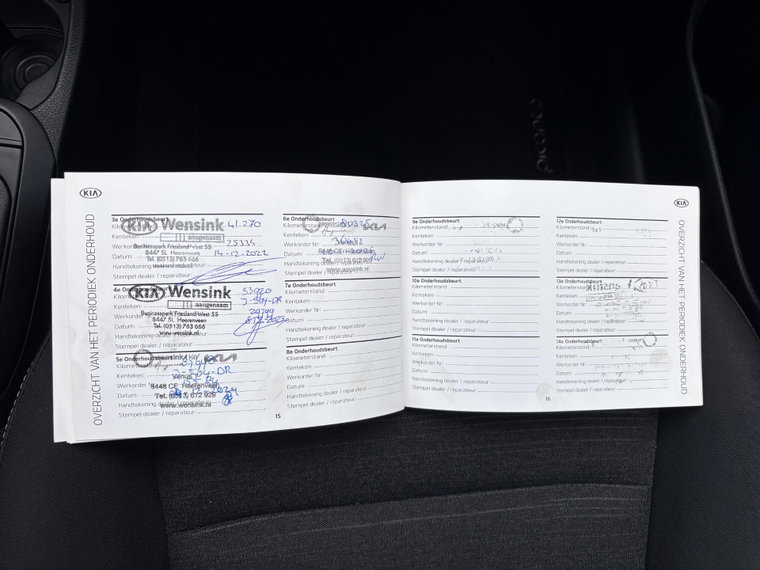 KIA
OVERZICHT VAN HET PERIODIEK ONDERHOUD
3e Onderhoudsbeurt
KIA Wensink 41.270
aangenaam
Kenteken
Businesspark Friesland-West 55
Werkorder 25334
8447 SL Heerenveen
Datum 14-12-2022
Tel. (0513) 763 666
Handtekening
Stempel dealer / reparateur
4e
KIA Wensink
aangenaam
Kenteken
Businesspark Friesland-West 55
8447 SL Heerenveen
Datum
Tel. (0513) 763 666
Handtekening dealer / reparateur
www.wensink.nl
Stempel dealer / reparateur
5e Onderhoudsbeurt
KIA
Kenteken
Werkorder
8448 CE Heerenveen
Datum 2024
Tel. (0513) 612 928
Handtekening
www.wensink.nl
Stempel dealer / reparateur
15
6e Onderhoudsbeurt
Kilometerstand
KIA
Kenteken
Werkorder Nr.
8448 CE
Datum
Tel. (0513) 612 928
Handtekening dealer
www.wensink.nl
Stempel dealer / reparateur
7e Onderhoudsbeurt
Kilometerstand
Kenteken
Werkorder Nr.
Datum
Handtekening dealer / reparateur
Stempel dealer / reparateur
8e Onderhoudsbeurt
Kilometerstand
Kenteken
Werkorder Nr.
Datum
Handtekening dealer / reparateur
Stempel dealer / reparateur
9e Onderhoudsbeurt
Kilometerstand
Kenteken
Werkorder Nr.
Datum
Handtekening dealer / reparateur
Stempel dealer / reparateur
10e Onderhoudsbeurt
Kilometerstand
Kenteken
Werkorder Nr.
Datum
Handtekening dealer / reparateur
Stempel dealer / reparateur
11e Onderhoudsbeurt
Kilometerstand
Kenteken
Werkorder Nr.
Datum
Handtekening dealer / reparateur
Stempel dealer / reparateur
16
12e Onderhoudsbeurt
Kilometerstand
Kenteken
Werkorder Nr.
Datum
Handtekening dealer / reparateur
Stempel dealer / reparateur
13e Onderhoudsbeurt
Kilometerstand
Kenteken
Werkorder Nr.
Datum
Handtekening dealer / reparateur
Stempel dealer / reparateur
14e Onderhoudsbeurt
Kilometerstand
Kenteken
Werkorder Nr.
Datum
Handtekening dealer / reparateur
Stempel dealer / reparateur
KIA
OVERZICHT VAN HET PERIODIEK ONDERHOUD
picanto